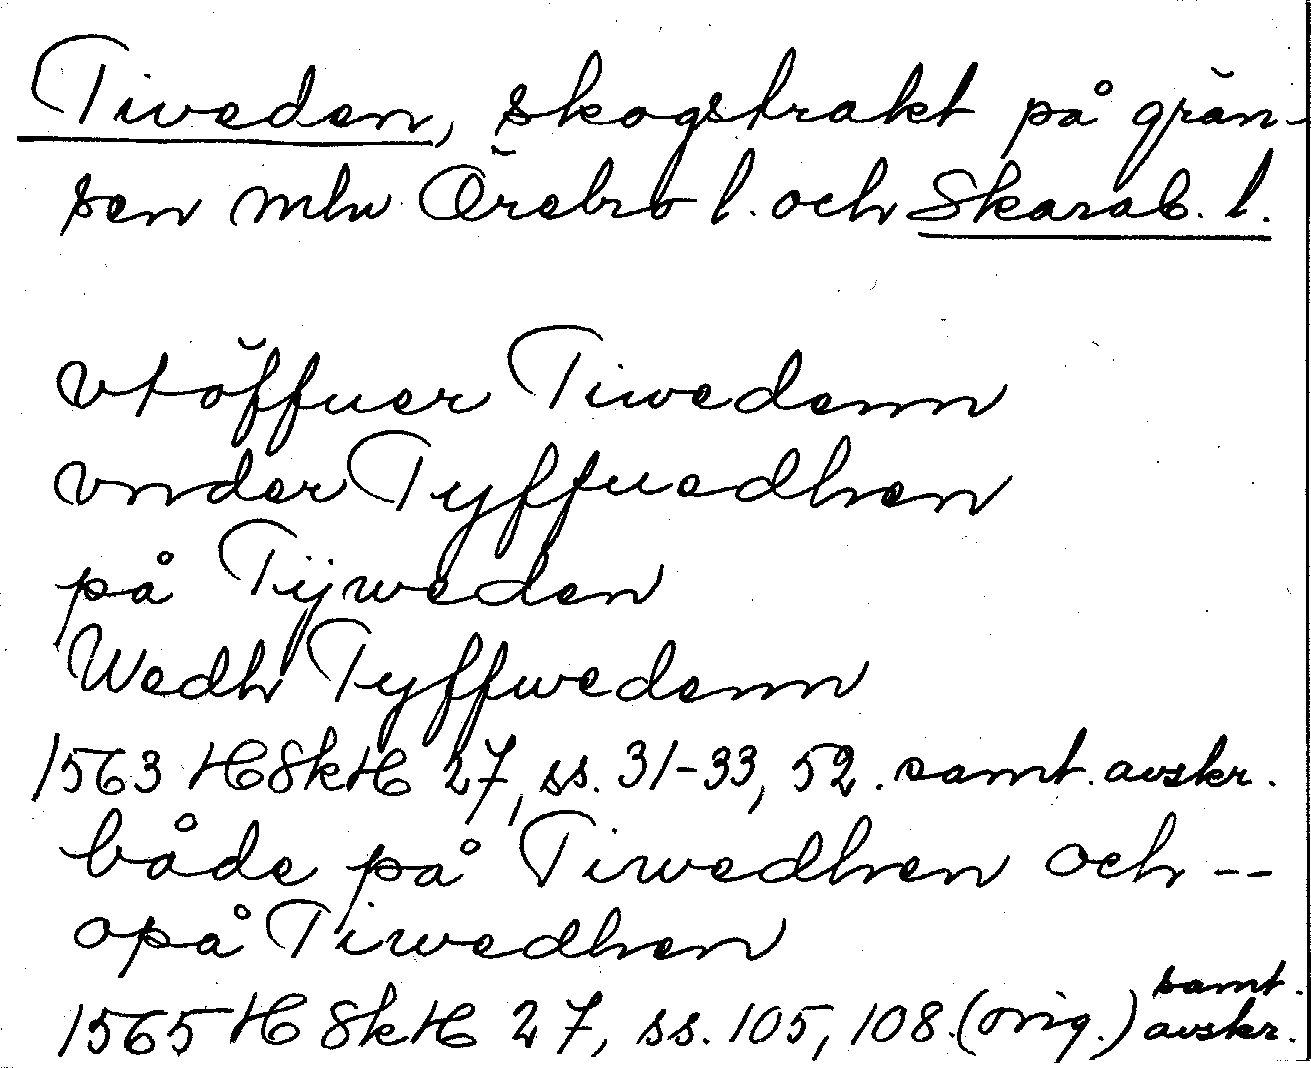 Tiveden, skogstrakt på grän-
sen mlw Örebro l. och Skarab. l.
vtöffuer Tiwedenn
vnder Tyffuedhen
på Tijweden
Wedh Tyffwedenn
1563 HSkH 27, ss. 31-33, 52. samt. avskr.
både på Tiwedhen och --
opå Tiwedhen
1565 HSkH 27, ss. 105, 108. (orig.) samt. avskr.